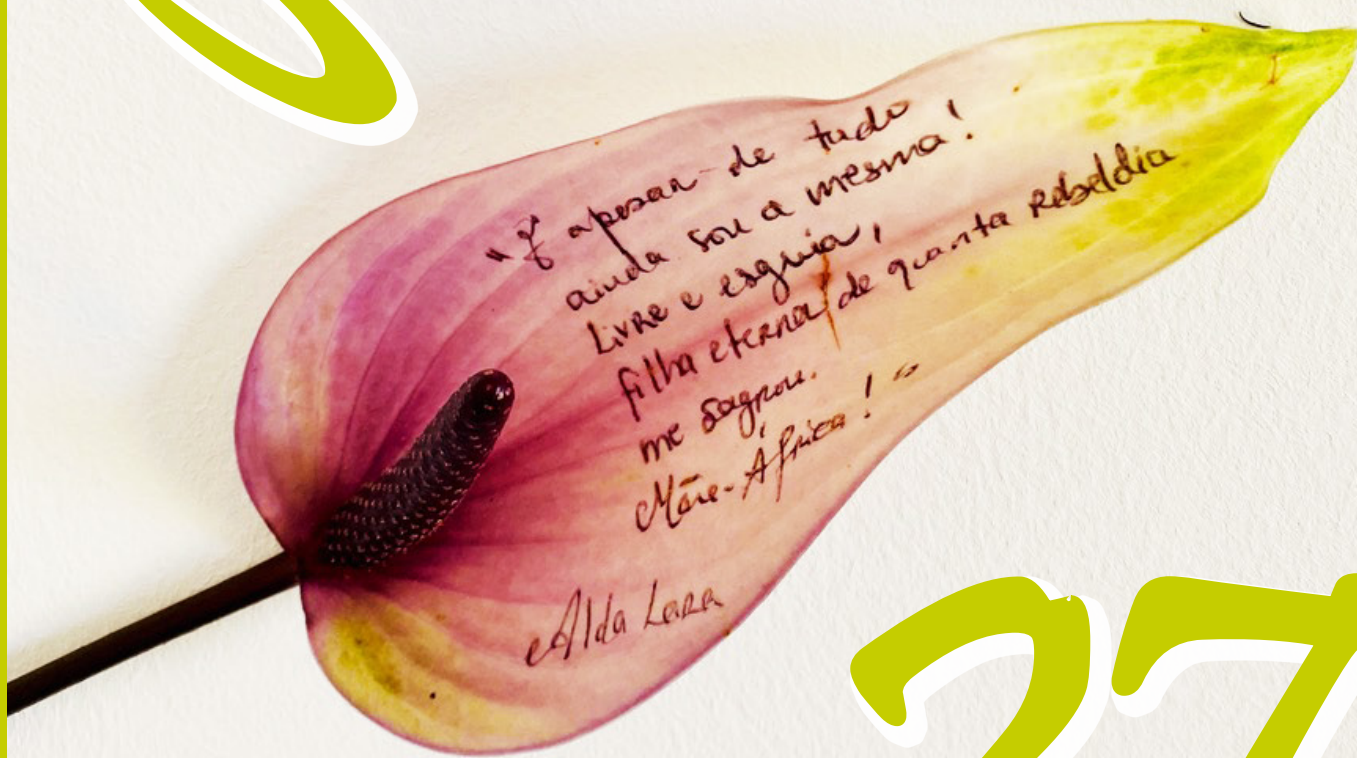 "E apesar de tudo
ainda sou a mesma!
Livre e esguia,
filha eterna de quanta Rebeldia
me sagrou.
Mãe-África!"
Alda Lara
27